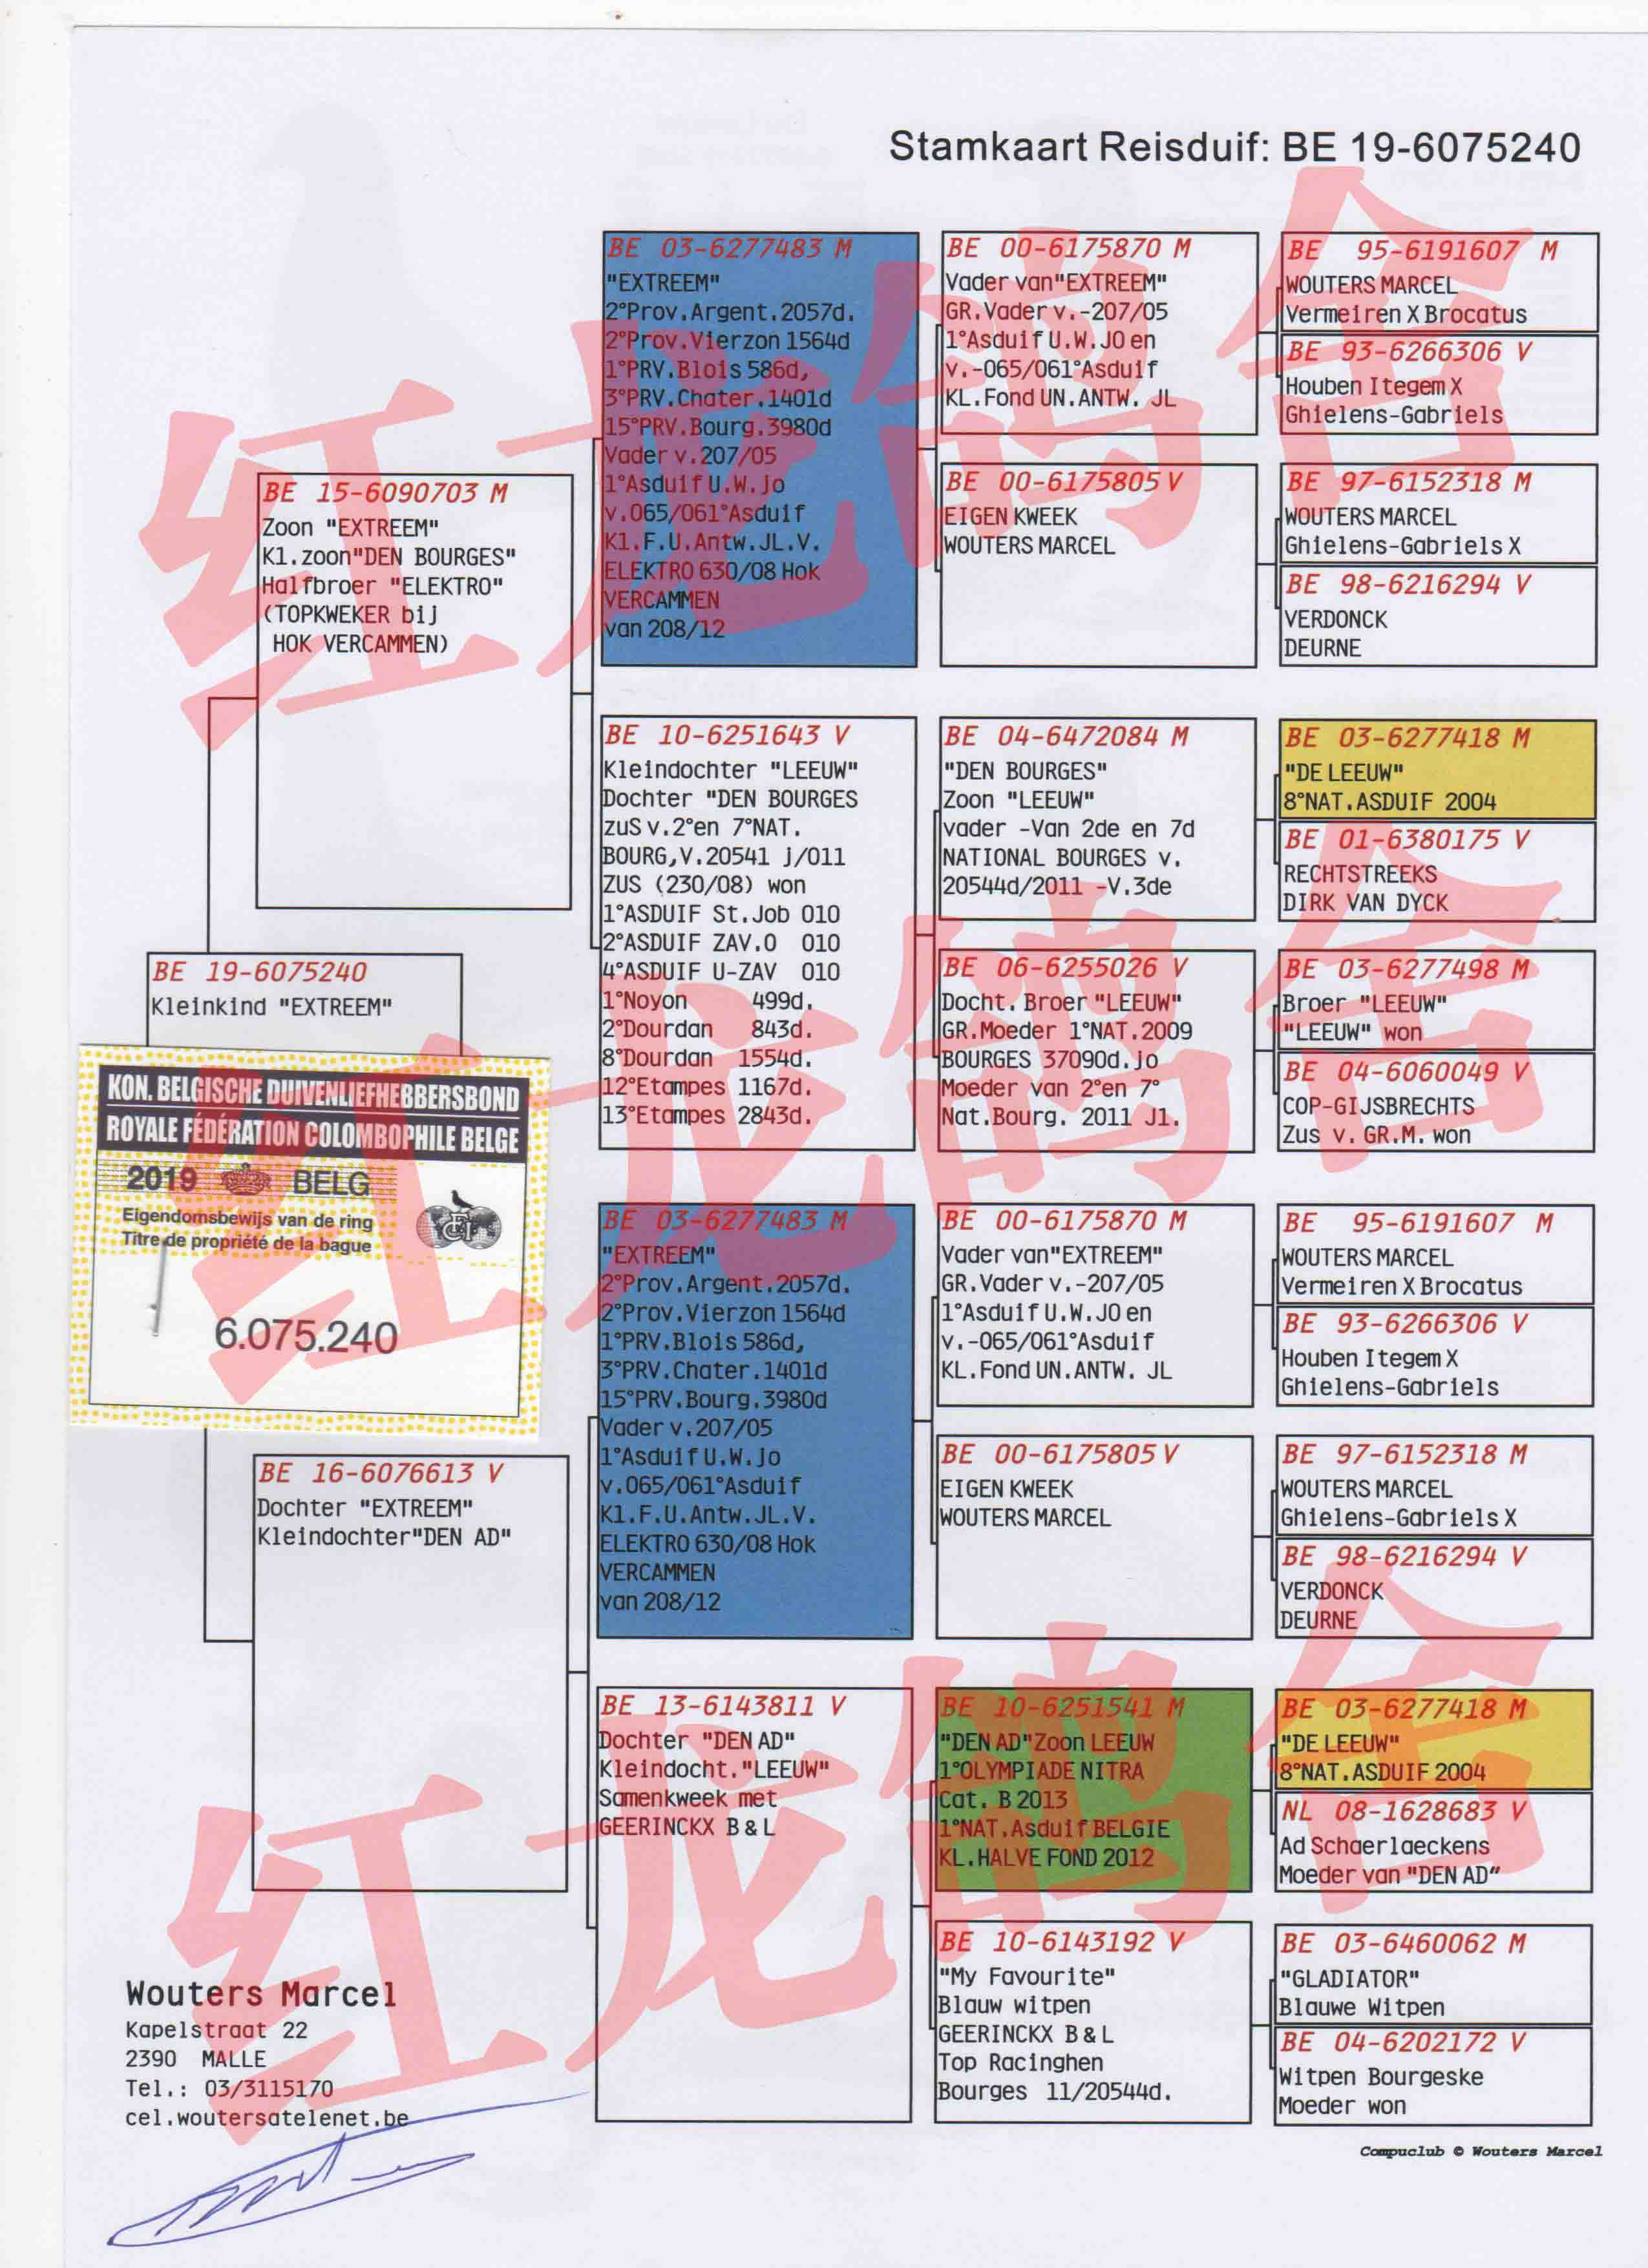 Stamkaart Reisduif: BE 19-6075240
BE 19-6075240
Kleinkind "EXTREEM"
KON. BELGISCHE DUIVENLIEFHEBBERSBOND
ROYALE FÉDÉRATION COLOMBOPHILE BELGE
2019 BELG
Eigendomsbewijs van de ring
Titre de propriété de la bague
6.075.240
BE 15-6090703 M
Zoon "EXTREEM"
Kl.zoon"DEN BOURGES"
Halfbroer "ELEKTRO"
(TOPKWEKER bij
HOK VERCAMMEN)
BE 16-6076613 V
Dochter "EXTREEM"
Kleindochter"DEN AD"
BE 03-6277483 M
"EXTREEM"
2°Prov.Argent.2057d.
2°Prov.Vierzon 1564d
1°PRV.Blois 586d,
3°PRV.Chater.1401d
15°PRV.Bourg.3980d
Vader v.207/05
1°Asduif U.W.Jo
v.065/061°Asduif
Kl.F.U.Antw.JL.V.
ELEKTRO 630/08 Hok
VERCAMMEN
van 208/12
BE 10-6251643 V
Kleindochter "LEEUW"
Dochter "DEN BOURGES
zuS v.2°en 7°NAT.
BOURG,V.20541 j/011
ZUS (230/08) won
1°ASDUIF St.Job 010
2°ASDUIF ZAV.O 010
4°ASDUIF U-ZAV 010
1°Noyon 499d.
2°Dourdan 843d.
8°Dourdan 1554d.
12°Etampes 1167d.
13°Etampes 2843d.
BE 03-6277483 M
"EXTREEM"
2°Prov.Argent.2057d.
2°Prov.Vierzon 1564d
1°PRV.Blois 586d,
3°PRV.Chater.1401d
15°PRV.Bourg.3980d
Vader v.207/05
1°Asduif U.W.Jo
v.065/061°Asduif
Kl.F.U.Antw.JL.V.
ELEKTRO 630/08 Hok
VERCAMMEN
van 208/12
BE 13-6143811 V
Dochter "DEN AD"
Kleindocht."LEEUW"
Samenkweek met
GEERINCKX B & L
BE 00-6175870 M
Vader van"EXTREEM"
GR.Vader v.-207/05
1°Asduif U.W.JO en
v.-065/061°Asduif
KL.Fond UN.ANTW. JL
BE 00-6175805 V
EIGEN KWEEK
WOUTERS MARCEL
BE 04-6472084 M
"DEN BOURGES"
Zoon "LEEUW"
vader -Van 2de en 7d
NATIONAL BOURGES v.
20544d/2011 -V.3de
BE 06-6255026 V
Docht. Broer "LEEUW"
GR.Moeder 1°NAT.2009
BOURGES 37090d.jo
Moeder van 2°en 7°
Nat.Bourg. 2011 J1.
BE 00-6175870 M
Vader van"EXTREEM"
GR.Vader v.-207/05
1°Asduif U.W.JO en
v.-065/061°Asduif
KL.Fond UN.ANTW. JL
BE 00-6175805 V
EIGEN KWEEK
WOUTERS MARCEL
BE 10-6251541 M
"DEN AD"Zoon LEEUW
1°OLYMPIADE NITRA
Cat. B 2013
1°NAT.Asduif BELGIE
KL.HALVE FOND 2012
BE 10-6143192 V
"My Favourite"
Blauw witpen
GEERINCKX B & L
Top Racinghen
Bourges 11/20544d.
BE 95-6191607 M
WOUTERS MARCEL
Vermeiren X Brocatus
BE 93-6266306 V
Houben Itegem X
Ghielens-Gabriels
BE 97-6152318 M
WOUTERS MARCEL
Ghielens-Gabriels X
BE 98-6216294 V
VERDONCK
DEURNE
BE 03-6277418 M
"DE LEEUW"
8°NAT.ASDUIF 2004
BE 01-6380175 V
RECHTSTREEKS
DIRK VAN DYCK
BE 03-6277498 M
Broer "LEEUW"
"LEEUW" won
BE 04-6060049 V
COP-GIJSBRECHTS
Zus v. GR.M. won
BE 95-6191607 M
WOUTERS MARCEL
Vermeiren X Brocatus
BE 93-6266306 V
Houben Itegem X
Ghielens-Gabriels
BE 97-6152318 M
WOUTERS MARCEL
Ghielens-Gabriels X
BE 98-6216294 V
VERDONCK
DEURNE
BE 03-6277418 M
"DE LEEUW"
8°NAT.ASDUIF 2004
NL 08-1628683 V
Ad Schaerlaeckens
Moeder van "DEN AD"
BE 03-6460062 M
"GLADIATOR"
Blauwe Witpen
BE 04-6202172 V
Witpen Bourgeske
Moeder won
Wouters Marcel
Kapelstraat 22
2390 MALLE
Tel.: 03/3115170
cel.woutersatelenet.be
Compuclub © Wouters Marcel
红龙鸽舍
红龙鸽舍
红龙鸽舍